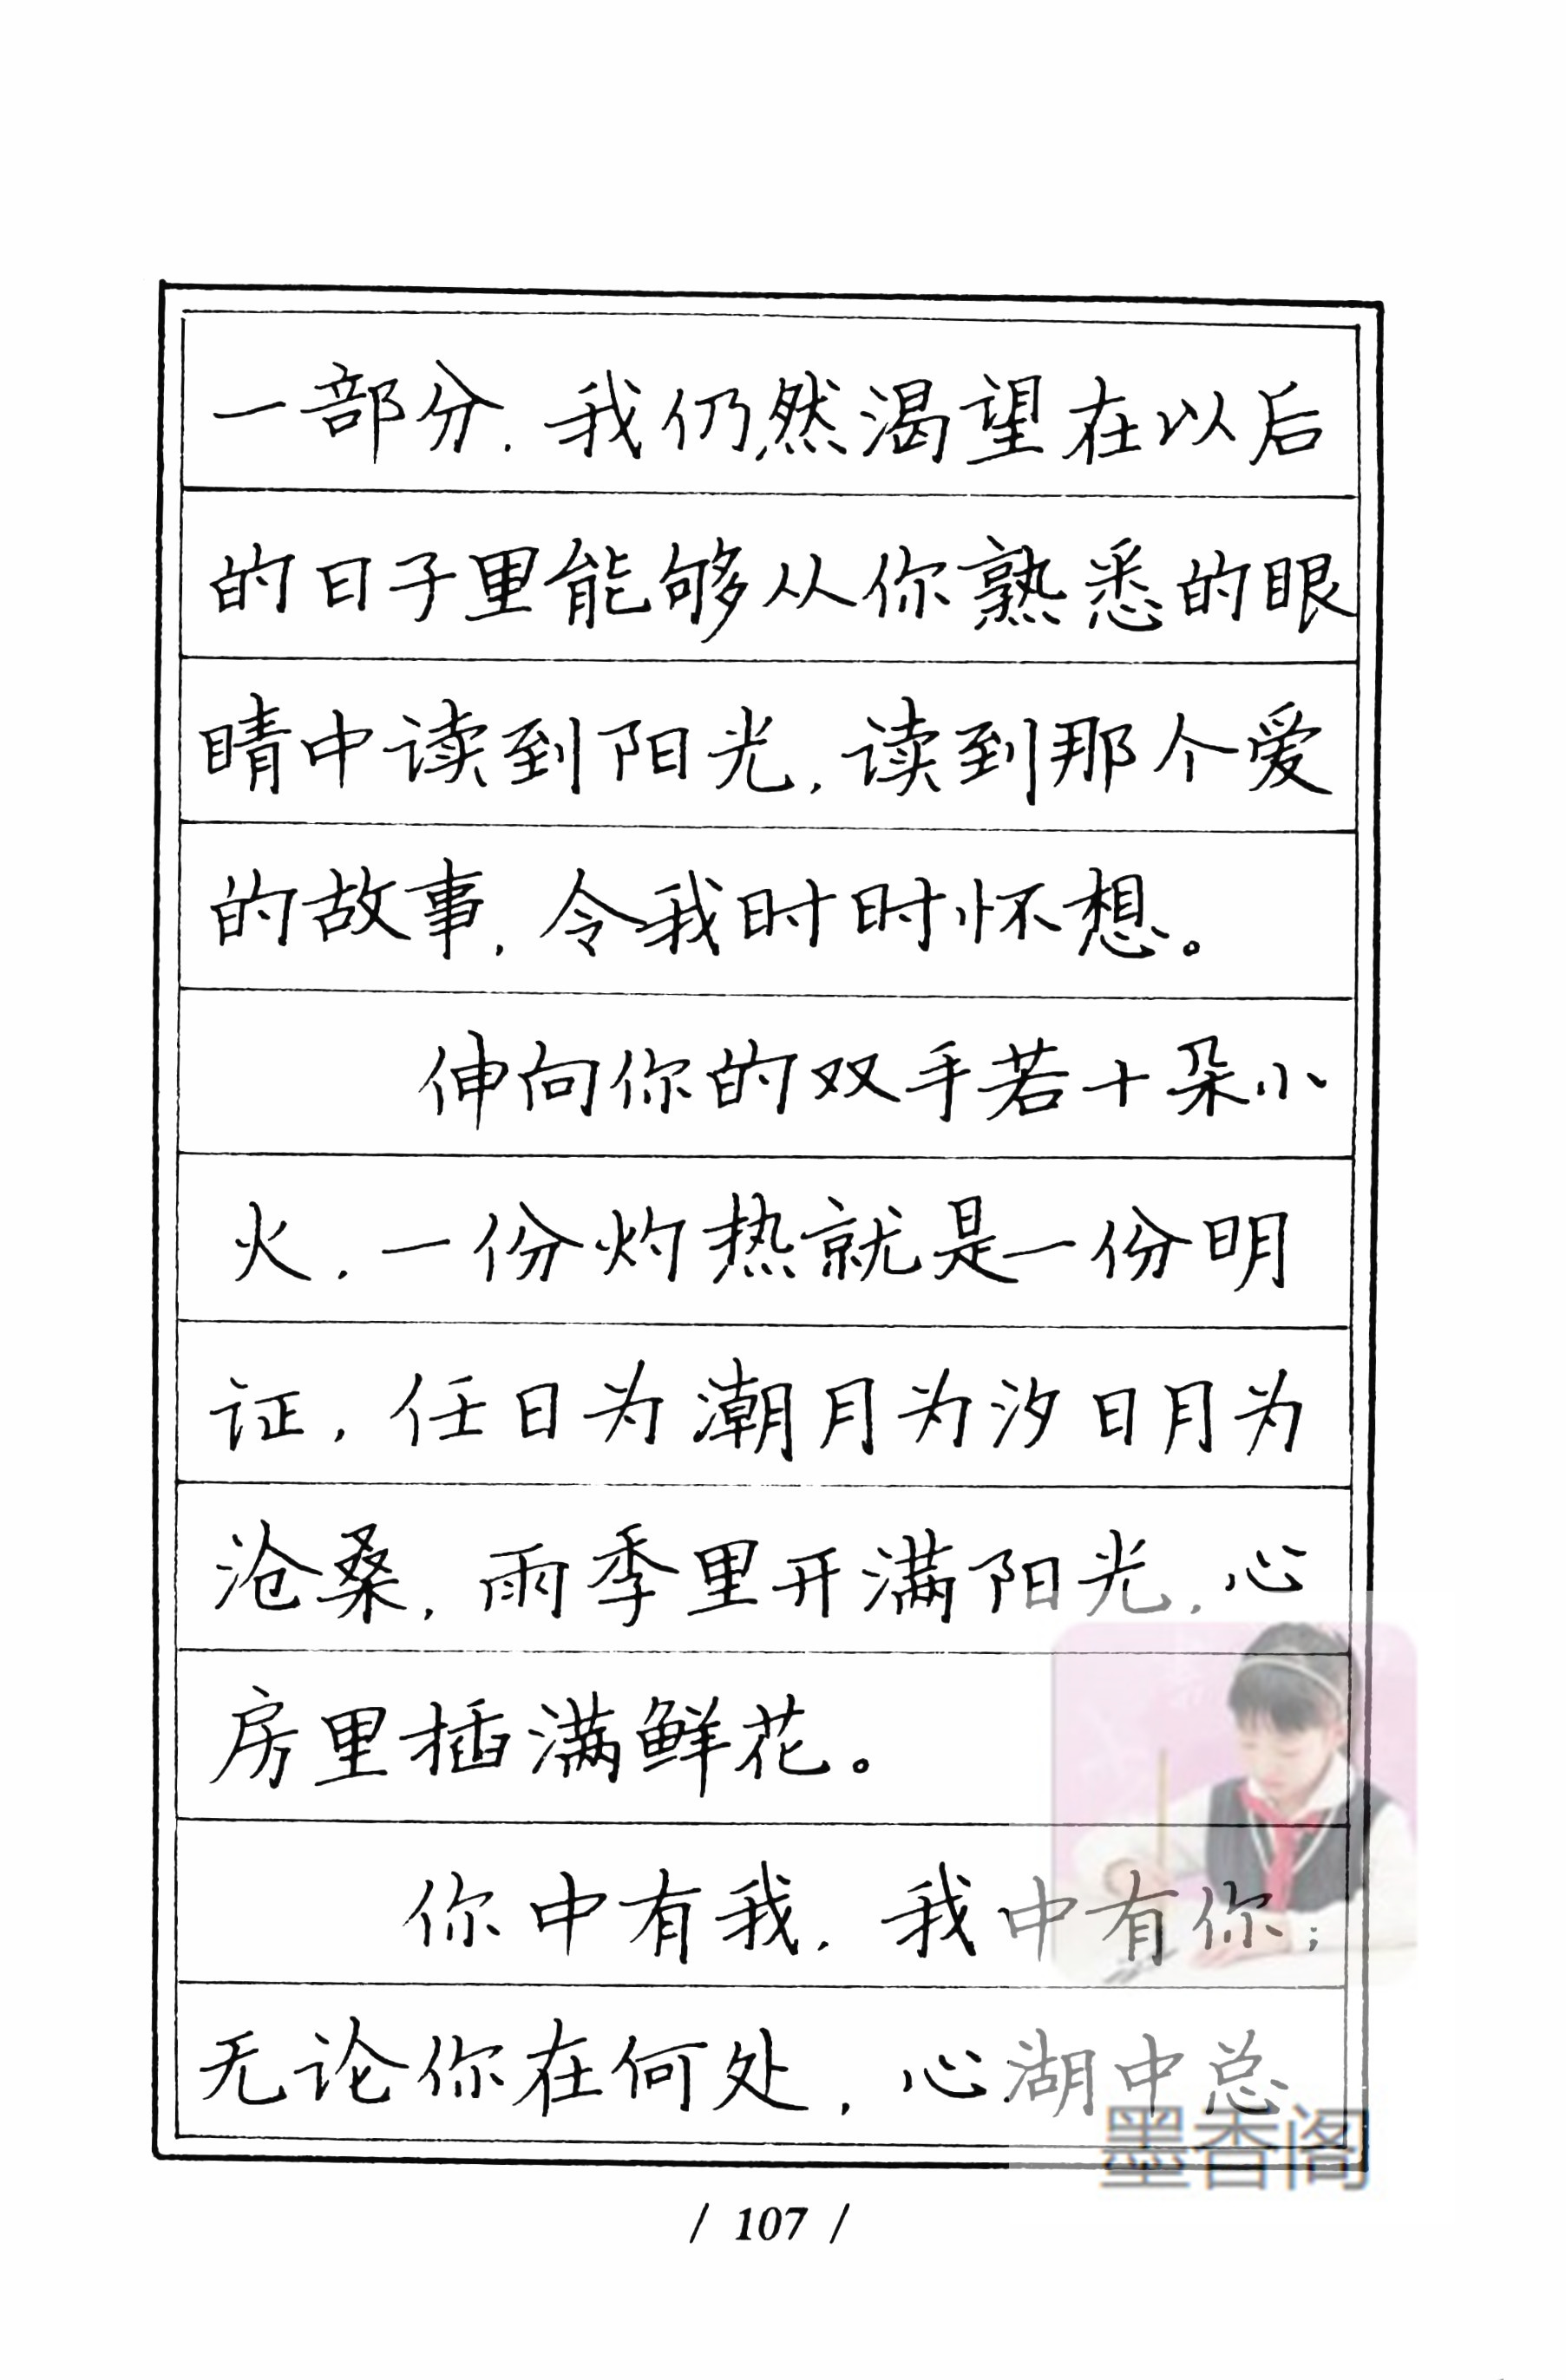 一部分,我仍然渴望在以后
的日子里能够从你熟悉的眼
睛中读到阳光,读到那个爱
的故事,令我时时怀想。
伸向你的双手若十朵小
火,一份灼热就是一份明
证,任日为潮月为汐日月为
沧桑,雨季里开满阳光,心
房里插满鲜花。
你中有我,我中有你;
无论你在何处,心湖中总
墨香阁
/ 107 /